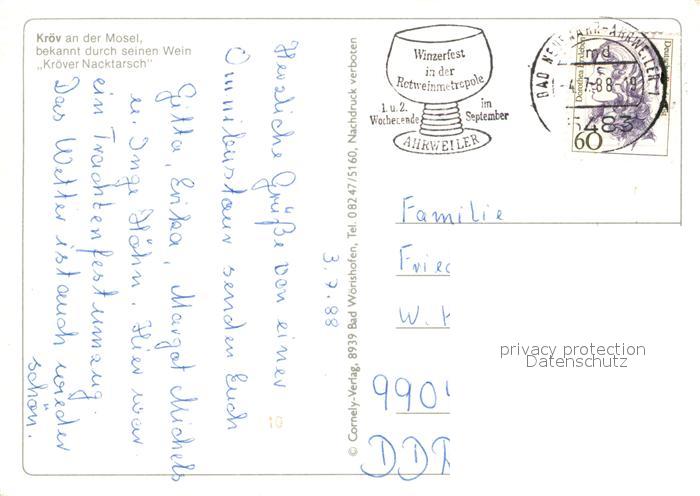 Kröv an der Mosel,
bekannt durch seinen Wein
„Kröver Nacktarsch"
3.7.88
Herzliche Grüße von einer
Omnibustour senden Euch
Gitta, Erika, Margot Michels
u. Inge Höhn. Hier war
ein Trachtenfestumzug.
Das Wetter ist auch wieder
schön.
10
© Cornely-Verlag, 8939 Bad Wörishofen, Tel. 0 82 47/5160, Nachdruck verboten
Winzerfest
in der
Rotweinmetropole
1. u. 2. im
Wochenende September
AHRWEILER
BAD NEUENAHR-AHRWEILER 1
md
-4.7.88-19
5483
Dorothea Erxleben
60
Familie
Fried
W. H
990
DDR
privacy protection
Datenschutz